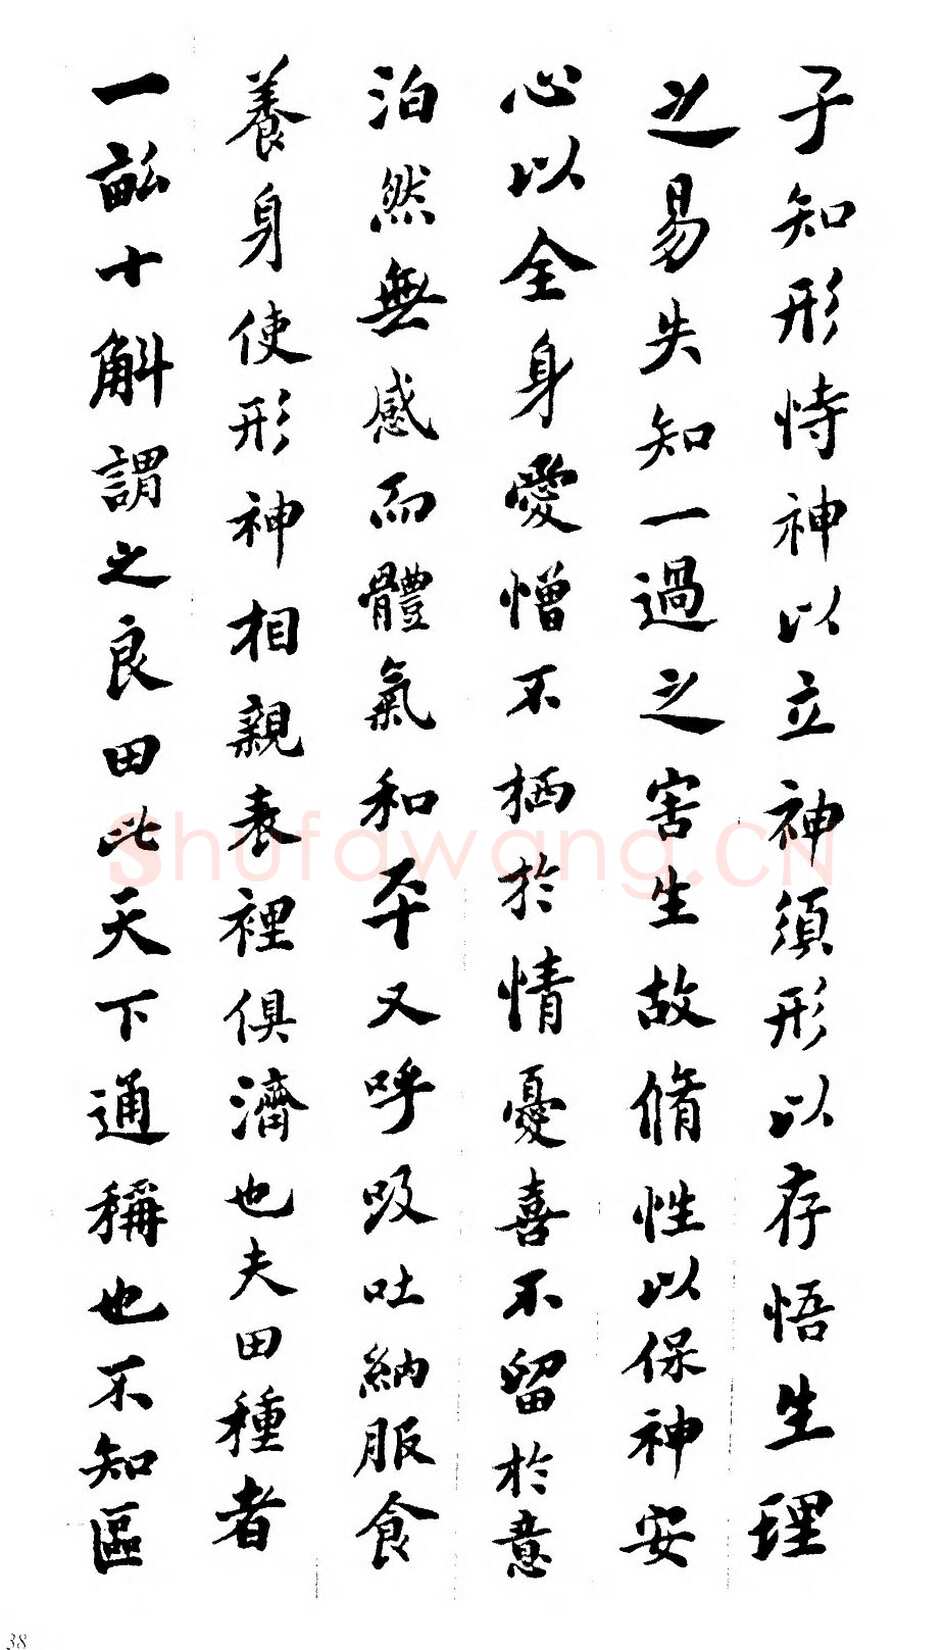 子知形恃神以立神須形以存悟生理
之易失知一過之害生故脩性以保神安
心以全身愛憎不栖於情憂喜不留於意
泊然無感而體氣和平又呼吸吐納服食
養身使形神相親表裡俱濟也夫田種者
一畝十斛謂之良田此天下通稱也不知區
Shufawang.CN
38